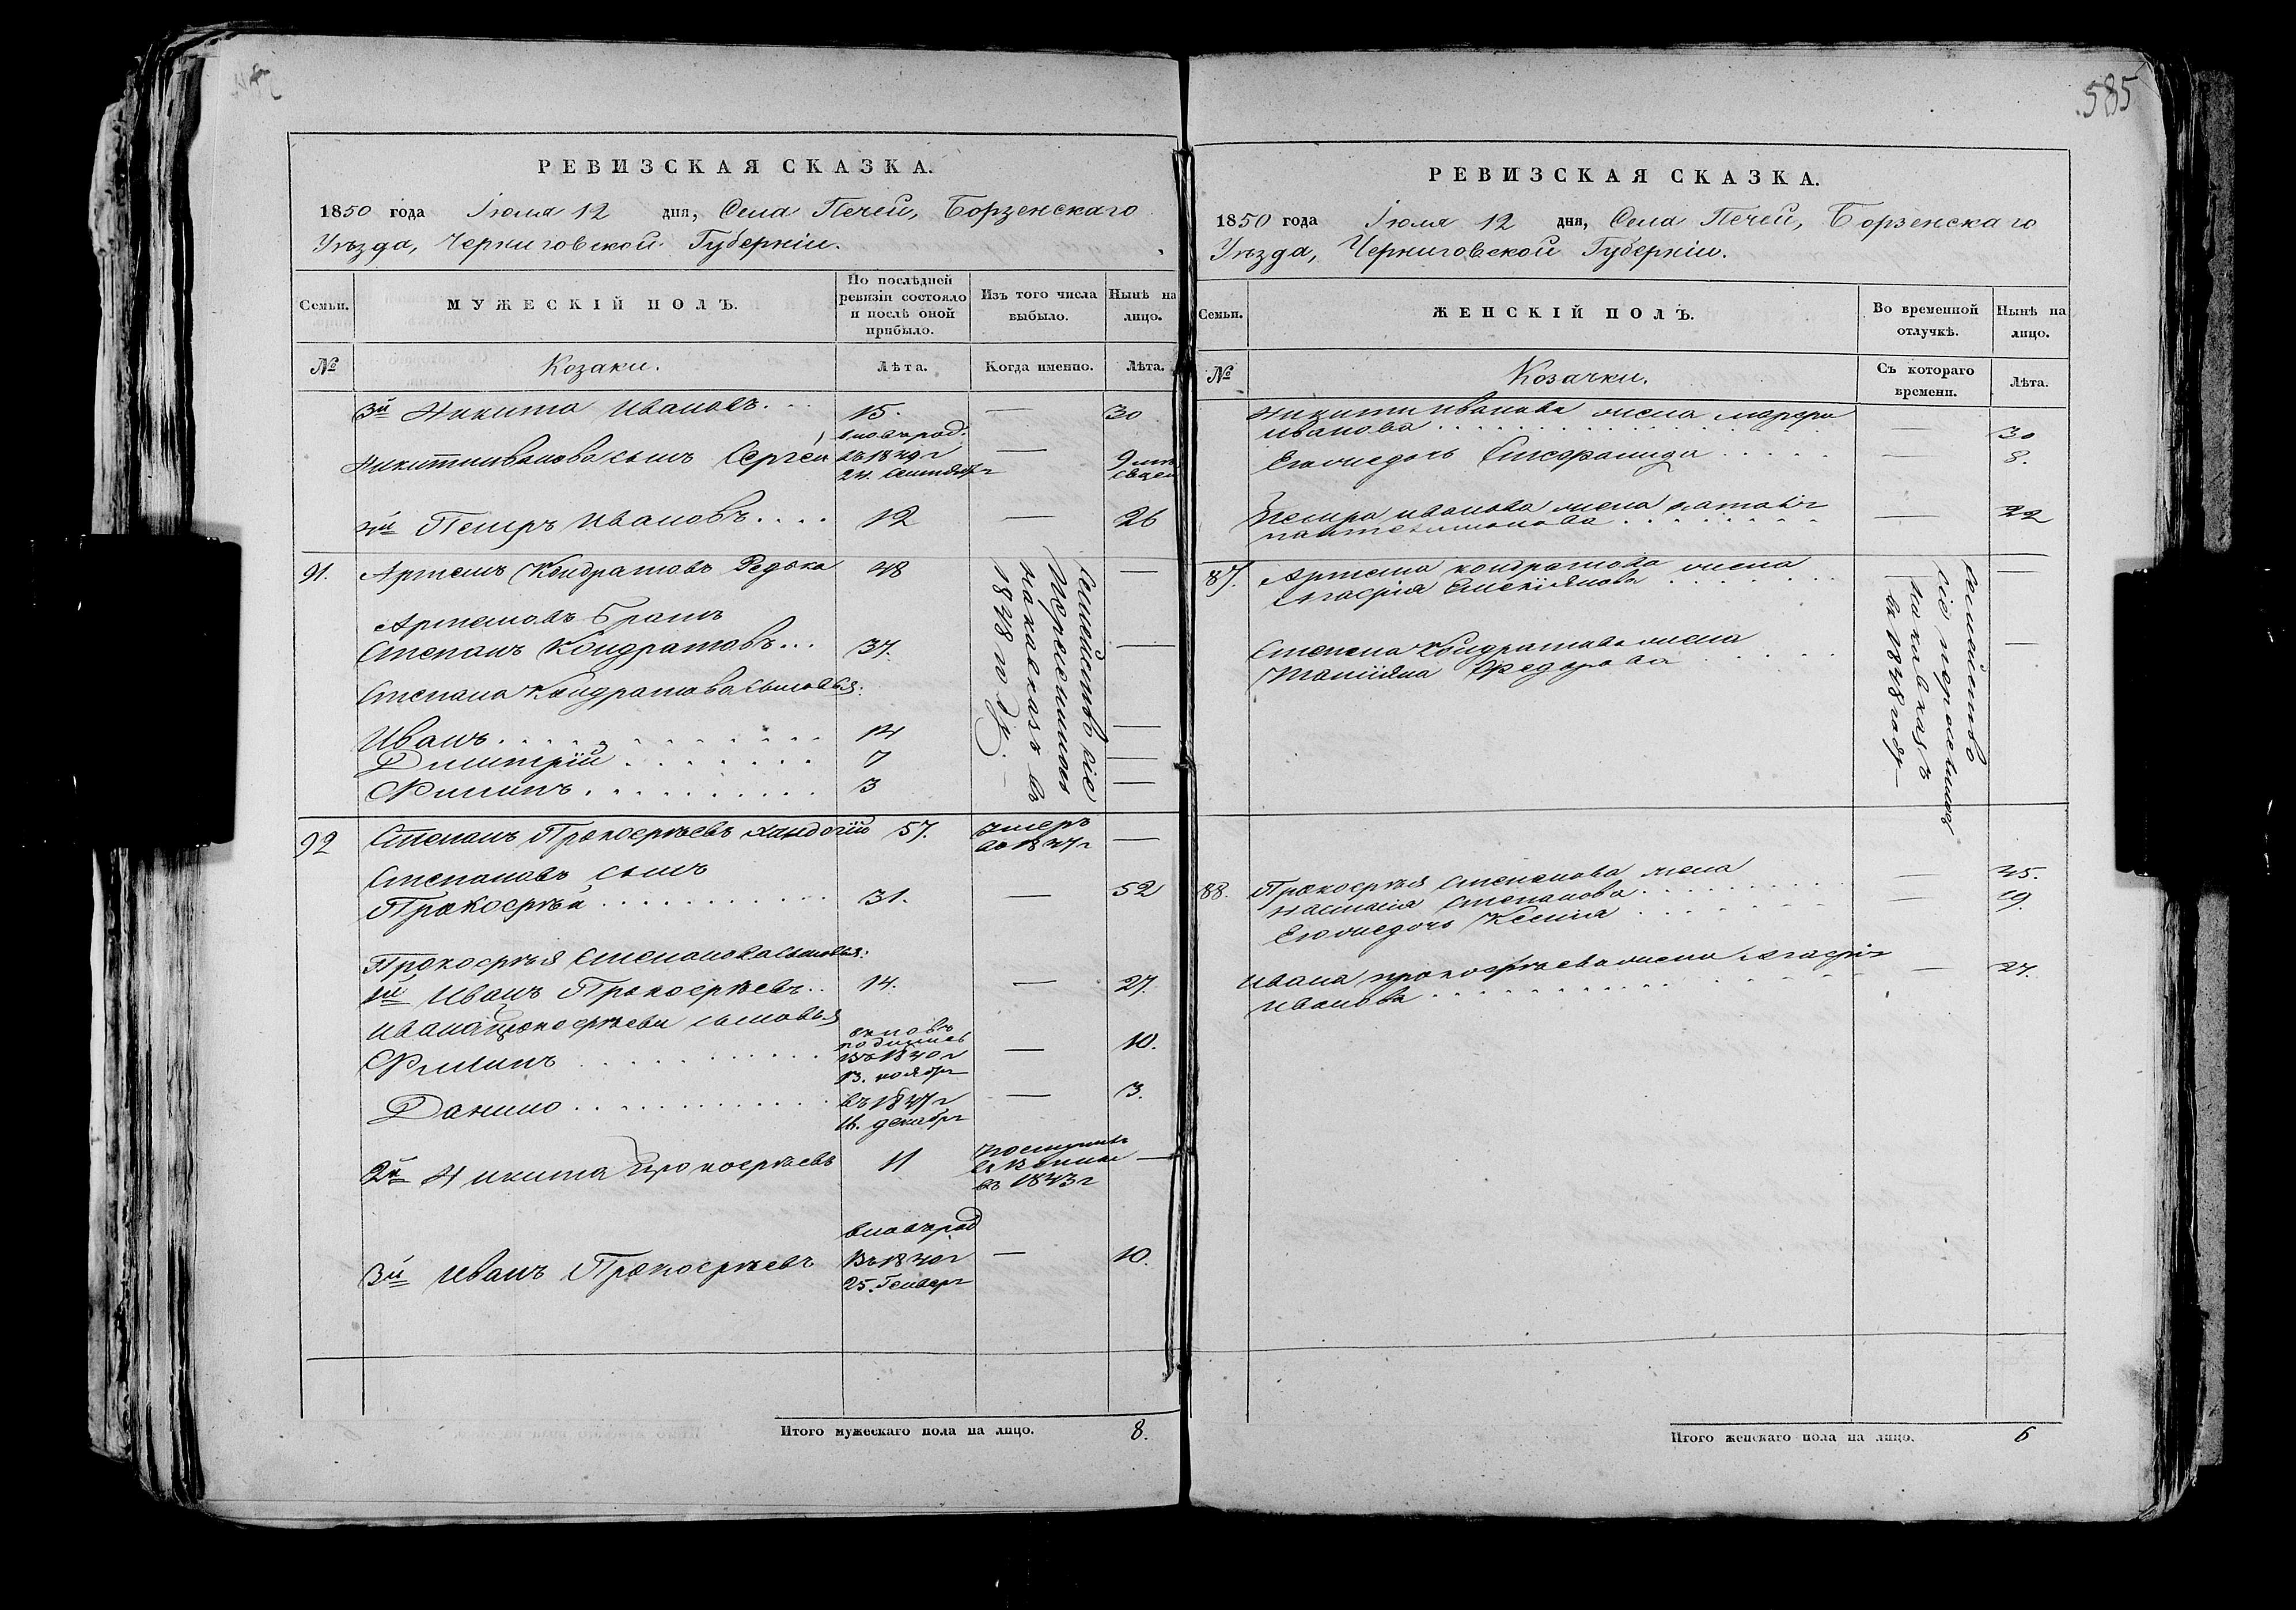 РЕВИЗСКАЯ СКАЗКА.
1850 года Іюля 12 дня, Села Печей, Борзенскаго
Уѣзда, Черниговской Губерніи.
Семьи.
МУЖЕСКІЙ ПОЛЪ.
По послѣдней
ревизіи состояло
и послѣ оной
прибыло.
Изъ того числа
выбыло.
Нынѣ на
лицо.
№
Козаки.
Лѣта.
Когда именно.
Лѣта.
3й Никита Ивановъ. 15. — 30
вновь род.
Никиты Иванова сынъ Сергей въ 1849 г —
24. Сентября
4й Петръ Ивановъ.... 12 — 26
91. Артемъ Кондратовъ Редька 48 —
Артемовъ Братъ
Степанъ Кондратовъ... 37. —
Степана Кондратова сыновья:
Иванъ 14 —
Дмитрій 7 —
Филипъ 3 —
Семейство сіе
Переселилось
на кавказъ въ
1848 году. —
92 Степанъ Прокофьевъ 57. умеръ —
въ 1847 г
Степановъ сынъ
Прокофѣй 31. — 52
Прокофѣя Степанова сыновья:
1й Иванъ Прокофѣевъ.. 14. — 27.
Ивана Прокофѣева сыновья
Филипъ
вновь
родились
въ 1840 г — 10.
13. ноября
Данило въ 1847 г — 3.
16. декабря
2й Никита Прокофѣевъ 11
въ 1843 г —
вновь род
3й Иванъ Прокофѣевъ въ 1840 г — 10.
25. Генваря
Итого мужескаго пола на лицо. 8.
585
РЕВИЗСКАЯ СКАЗКА.
1850 года Іюля 12 дня, Села Печей, Борзенскаго
Уѣзда, Черниговской Губерніи.
Семьи.
ЖЕНСКІЙ ПОЛЪ.
Во временной
отлучкѣ.
Нынѣ на
лицо.
№
Козачки.
Съ котораго
времени.
Лѣта.
Никиты Иванова жена Марфа
Иванова — 30
Его дочь — 8.
Петра Иванова жена
Пантелимонова — 22
87. Артема Кондратова жена —
Агафія
Степана Кондратова жена —
Татіяна Федорова
Семейство
сіе переселилось
на кавказъ
въ 1848 году —
88. Прокофѣя Степанова жена
Настасія Степанова — 45.
Его дочь Ксенія — 19.
Ивана Прокофѣева жена Агафія
Иванова — 27.
Итого женскаго пола на лицо. 6